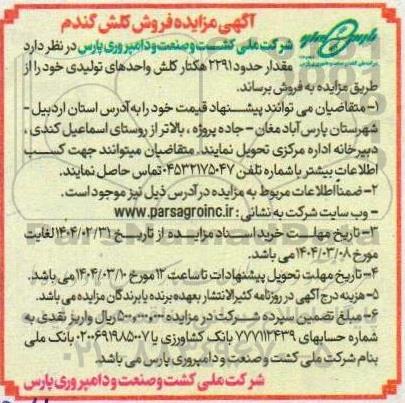 آگهی مزایده فروش کلش گندم
شرکت ملی کشت و صنعت و دامپروری پارس در نظر دارد
مقدار حدود ۲۲۹۱ هکتار کلش واحدهای تولیدی خود را از
طریق مزایده به فروش برساند.
۱- متقاضیان می توانند پیشنهاد قیمت خود را به آدرس استان اردبیل -
شهرستان پارس آباد مغان - جاده پروژه ، بالاتر از روستای اسماعیل کندی ،
دبیرخانه اداره مرکزی تحویل نمایند. متقاضیان میتوانند جهت کسب
اطلاعات بیشتر با شماره تلفن ۰۴۵۳۲۱۷۵۰۴۷ تماس حاصل نمایند.
۲- ضمنا اطلاعات مربوط به مزایده در آدرس ذیل نیز موجود است.
- وب سایت شرکت به نشانی : www.parsagroinc.ir
۳- تاریخ مهلت خرید اسناد مزایده از تاریخ ۱۴۰۴/۰۲/۳۱ لغایت
مورخ ۱۴۰۴/۰۳/۰۸ می باشد.
۴- تاریخ مهلت تحویل پیشنهادات تا ساعت ۱۲ مورخ ۱۴۰۴/۰۳/۱۰ می باشد.
۵- هزینه درج آگهی در روزنامه کثیرالانتشار بعهده برنده یا برندگان مزایده می باشد.
۶- مبلغ تضمین سپرده شرکت در مزایده ۵۰۰,۰۰۰,۰۰۰ ریال واریز نقدی به
شماره حسابهای ۷۷۷۱۱۲۴۳۹ بانک کشاورزی یا ۰۲۰۰۶۹۱۹۸۵۰۰۷ بانک ملی
بنام شرکت ملی کشت و صنعت و دامپروری پارس می باشد.
شرکت ملی کشت و صنعت و دامپروری پارس